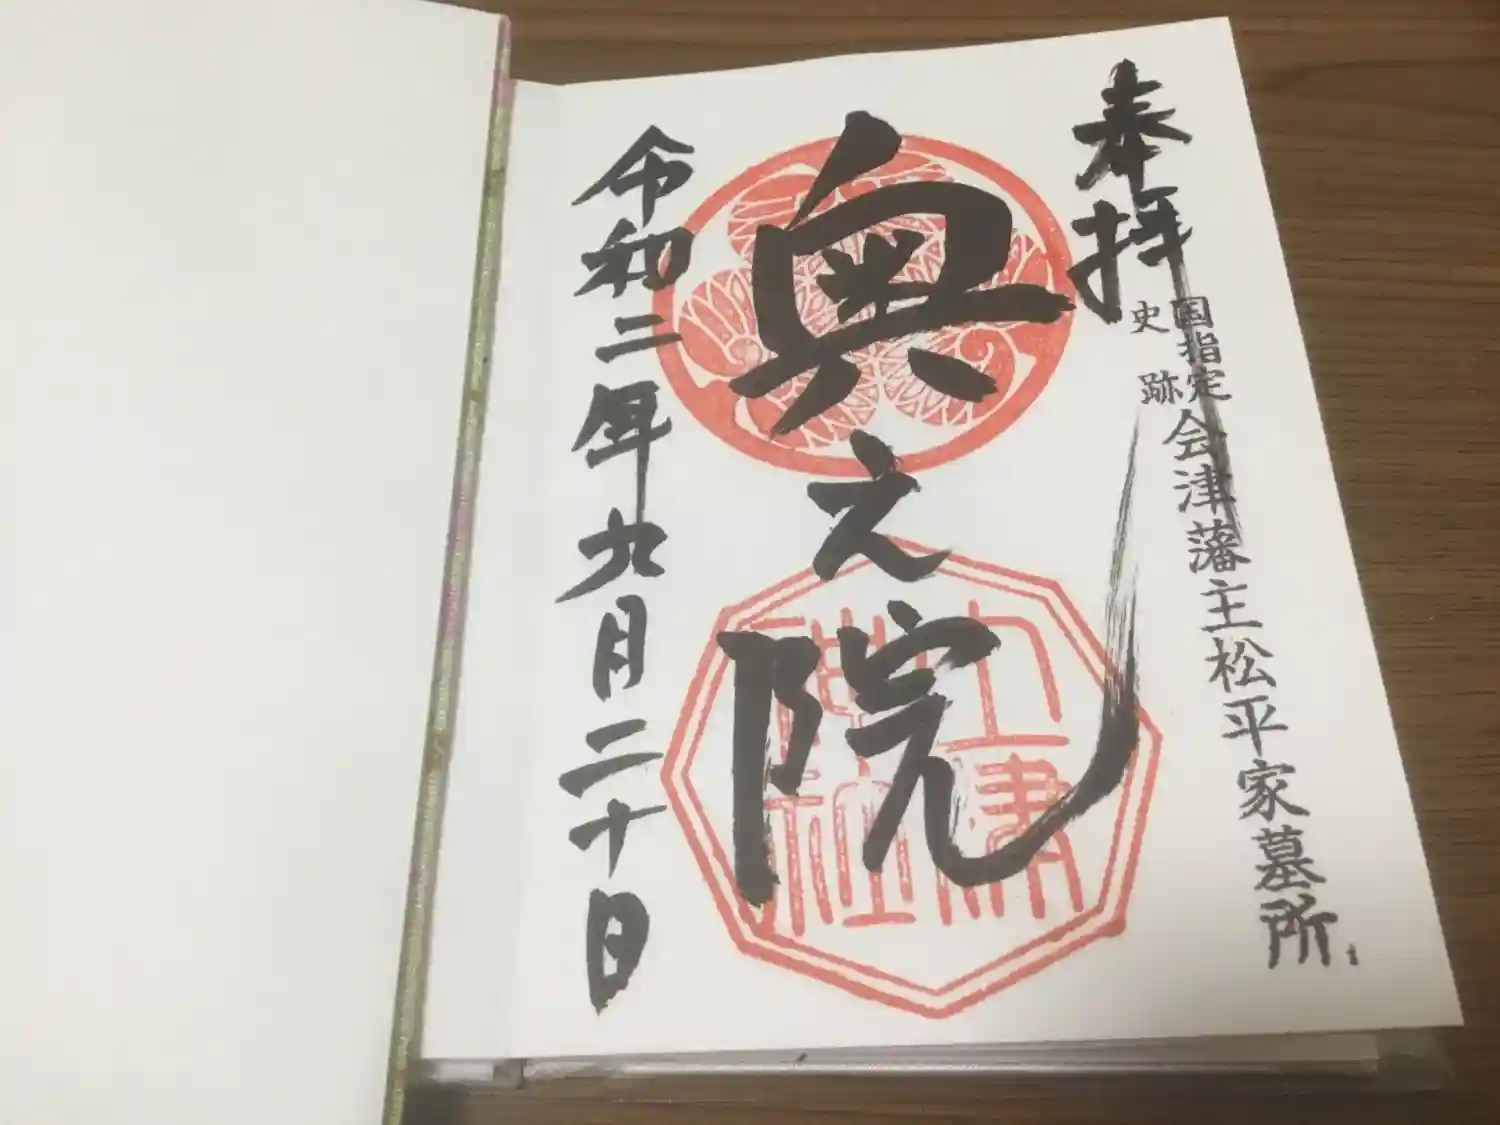 奉拝
国指定
史跡
会津藩主松平家墓所
奥之院
土津
神社
令和二年九月二十日